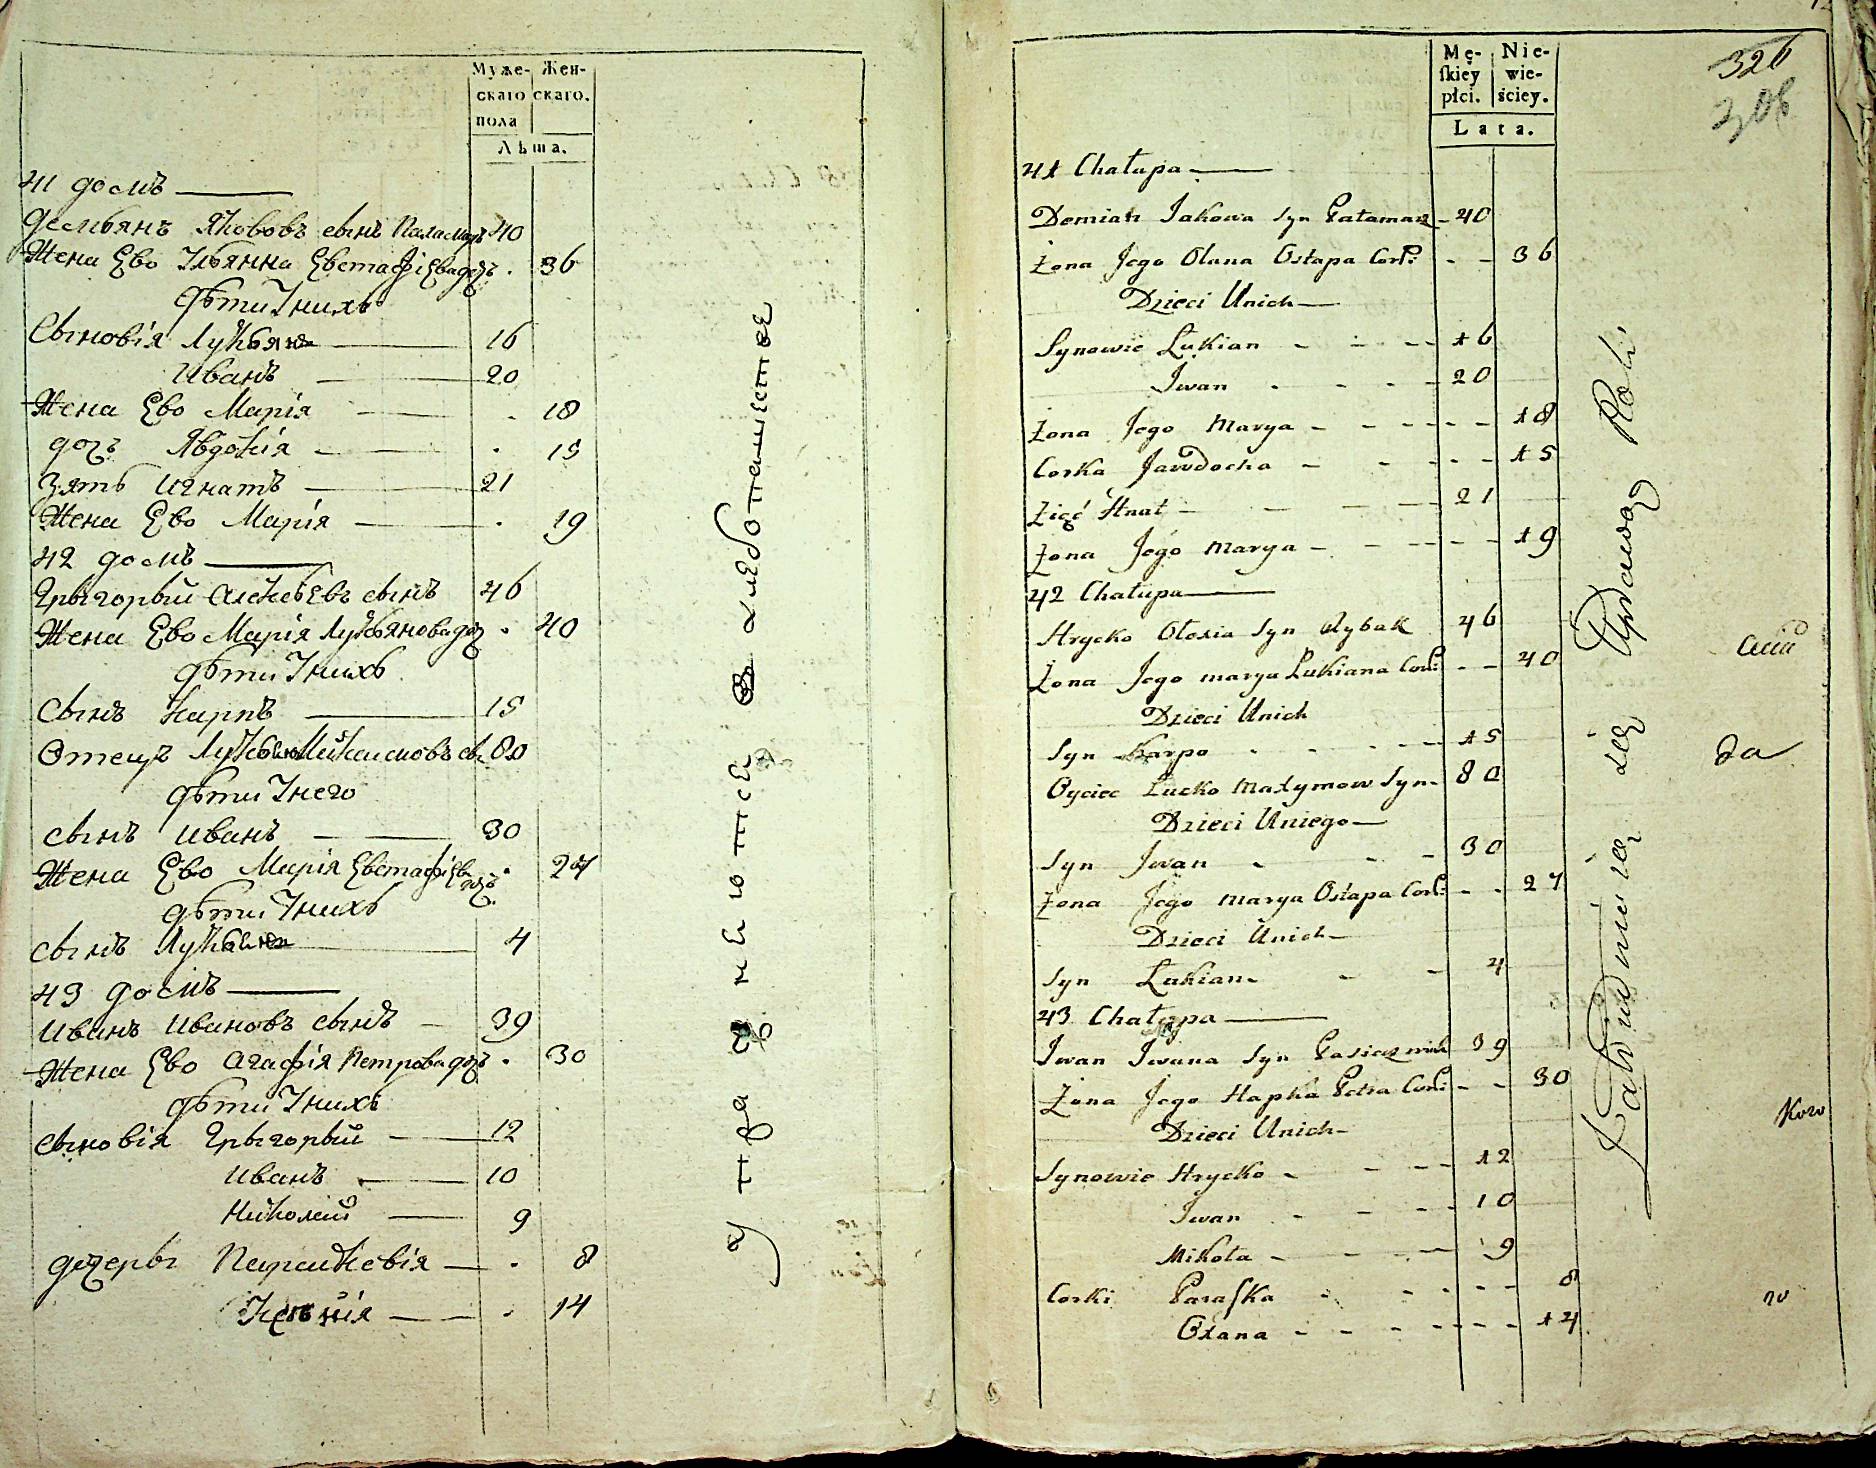 Муже- Жен-
скаго скаго.
пола
Лѣта.
41 домъ
Демьянъ Якововъ сынъ Паламаръ 40
Жена Ево Ульянна Евстафіева дочь 36
дѣти Уних
Сыновія Лукьян 16
Иванъ 20
Жена Ево Марія 18
дочь Явдокія 15
Зять Игнатъ 21
Жена Ево Марія 19
42 домъ
Грыгорый Алексѣевъ сынъ 46
Жена Ево Марія Лукьянова дочь 40
дѣти Унихъ
Сынъ Карпъ 15
Отецъ Лукьян Максимовъ сы 80
дѣти Унего
сынъ Иванъ 30
Жена Ево Марія Евстафіева дочь 27
дѣти Унихъ
сынъ Лукьян 4
43 домъ
Иванъ Ивановъ сынъ 39
Жена Ево Агафія Петрова дочь 30
дѣти Унихъ
сыновія Грыгорый 12
Иванъ 10
Николай 9
дочеры Параскевія 8
14
упражняются в хлебопашестве
Mę- Nie-
skiey wie-
płci. ściey.
Lata.
326
41 Chałupa
Demian Jakowa Syn Pałamarz 40
Żona Jego Olana Ostapa Cor: 36
Dzieci Unich
Synowie Łukian 16
Iwan 20
Żona Jego Marya 18
Corka Jawdocha 15
Zięć Hnat 21
Żona Jego Marya 19
42 Chałupa
Hrycko Olexia Syn Rybak 46
Żona Jego Marya Łukiana Cor: 40
Dzieci Unich
Syn Karpo 15
Oyciec Łucko Maxymow Syn 80
Dzieci Uniego
Syn Iwan 30
Żona Jego Marya Ostapa Cor: 27
Dzieci Unich
Syn Łukian 4
43 Chałupa
Iwan Iwana Syn Pasiecznik 39
Żona Jego Hapka Petra Cor: 30
Dzieci Unich
Synowie Hrycko 12
Iwan 10
Mikoła 9
Corki Paraska 8
Oxana 14
Zatrudnienia się Uprawą Roli
да
го